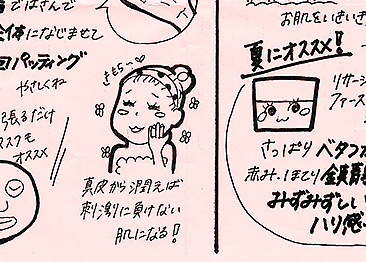 ではさんで
全体になじませて
パッティング
やさしくね
張るだけ
マスクも
オススメ
きもち〜♡
真皮から潤えば
刺激に負けない
肌になる!
お肌をいきいき
夏にオススメ!
リサージ
ファース
さっぱり ベタつ
赤み、ほてり 鎮静
みずみずしい
ハリ感